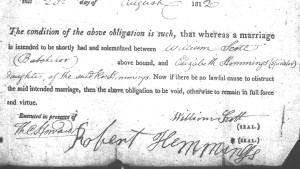 day of August 18
The condition of the above obligation is such, that whereas a marriage
is intended to be shortly had and solemnized between William Scott
(Batchelor) above bound, and Elizabeth Hemmings (Spinster)
daughter of the said Hemmings. Now if there be no lawful cause to obstruct
the said intended marriage, then the above obligation to be void, otherwise to remain in full force
and virtue.
Executed in presence of
William Scott (SEAL.)
Robert Hemmings (SEAL.)